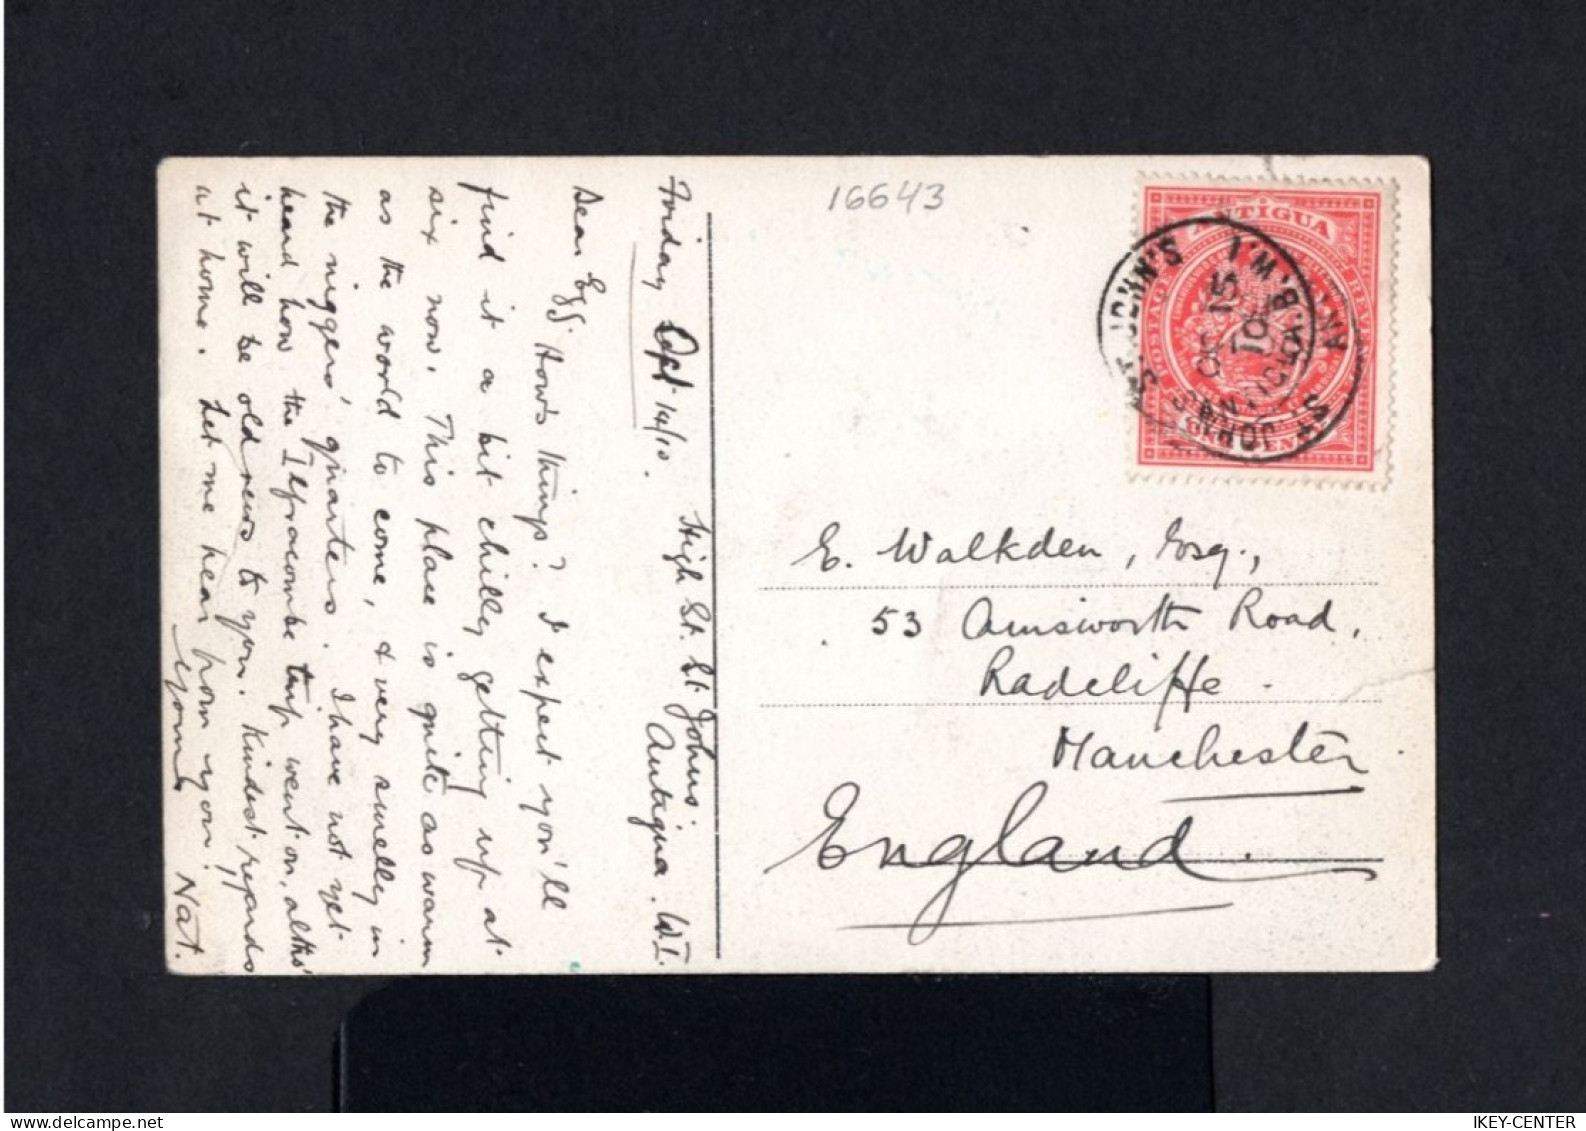 16643
ANTIGUA
POSTAGE & REVENUE
ONE PENNY
ST. JOHN'S
ANTIGUA B.W.I.
OC 15
10
Friday Oct 14/10.
High St. St. Johns.
Antigua. W.I.
Dear Egg. How's things? I expect you'll
find it a bit chilly getting up at
six now. This place is quite as warm
as the world to come, & very smelly in
the niggers' quarters. I have not yet
heard how the Ilfracombe trip went on, altho'
it will be old news to you. Kindest regards
at home. Let me hear from you!!
Yours
Nat.
E. Walkden, Esq.,
53 Ainsworth Road,
Radcliffe.
Manchester
England.
delcampe.net
IKEY-CENTER